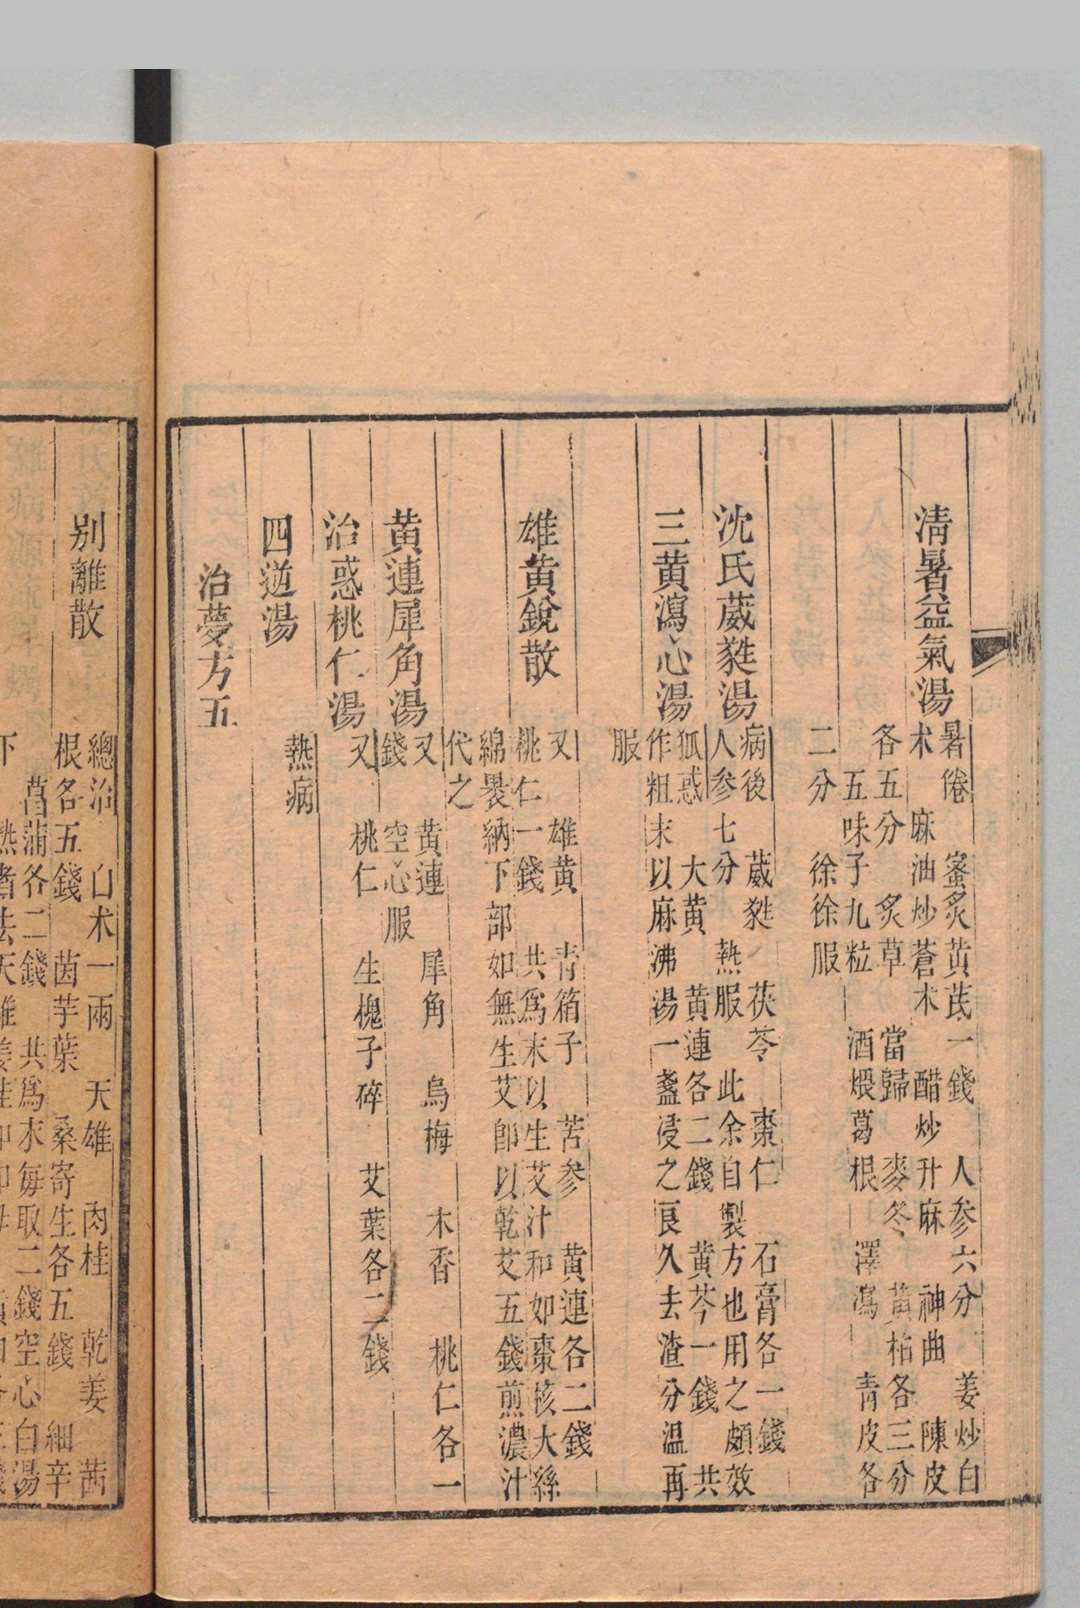 清暑益氣湯
暑倦 蜜炙黃芪一錢 人參六分 姜炒白
朮 麻油炒蒼朮 醋炒升麻 神曲 陳皮
各五分 炙草 當歸 麥冬 黃柏各三分
五味子九粒 酒煨葛根 澤瀉 青皮各
二分 徐徐服
沈氏葳蕤湯
病後 葳蕤 茯苓 棗仁 石膏各一錢
人參七分 熱服 此余自製方也用之頗效
三黃瀉心湯
狐惑 大黃 黃連各二錢 黃芩一錢 共
作粗末以麻沸湯一盞浸之良久去渣分溫再
服
雄黃銳散
又 雄黃 青箱子 苦參 黃連各二錢
桃仁一錢 共爲末以生艾汁和如棗核大絲
綿裹納下部如無生艾卽以乾艾五錢煎濃汁
代之
黃連犀角湯
又 黃連 犀角 烏梅 木香 桃仁各一
錢 空心服
治惑桃仁湯
又 桃仁 生槐子碎 艾葉各二錢
四逆湯
熱病
治夢方五
別離散
總治 白朮一兩 天雄 肉桂 乾姜 茜
根各五錢 茵芋葉 桑寄生各五錢 細辛
菖蒲各二錢 共爲末每取二錢空心白湯
下